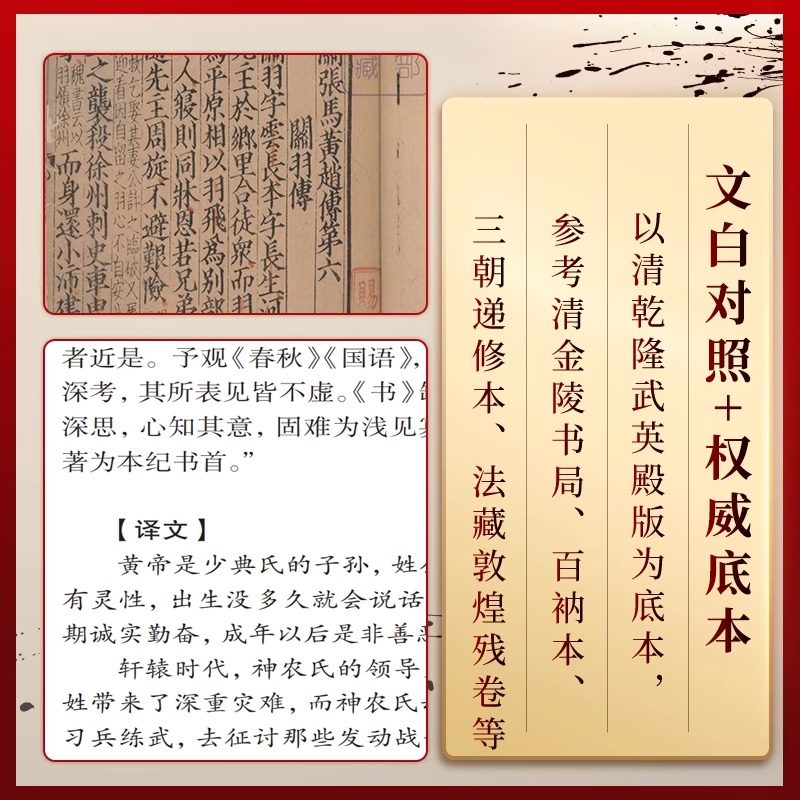 關張馬黃趙傳第六
關羽傳
關羽字雲長本字長生河
先主於鄉里合徒衆而羽
爲平原相以羽飛爲别部
人寢則同牀恩若兄弟
隨先主周旋不避艱險
迎看因自留之羽心不自安
之襲殺徐州刺史車
魏書云以
羽領徐州
而身還小沛建
藏
賜
者近是。予观《春秋》《国语》，
深考，其所表见皆不虚。《书》
深思，心知其意，固难为浅见
著为本纪书首。”
【译文】
黄帝是少典氏的子孙，姓
有灵性，出生没多久就会说话
期诚实勤奋，成年以后是非善
轩辕时代，神农氏的领导
姓带来了深重灾难，而神农氏
习兵练武，去征讨那些发动战
文白对照+权威底本
以清乾隆武英殿版为底本，
参考清金陵书局、百衲本、
三朝递修本、法藏敦煌残卷等